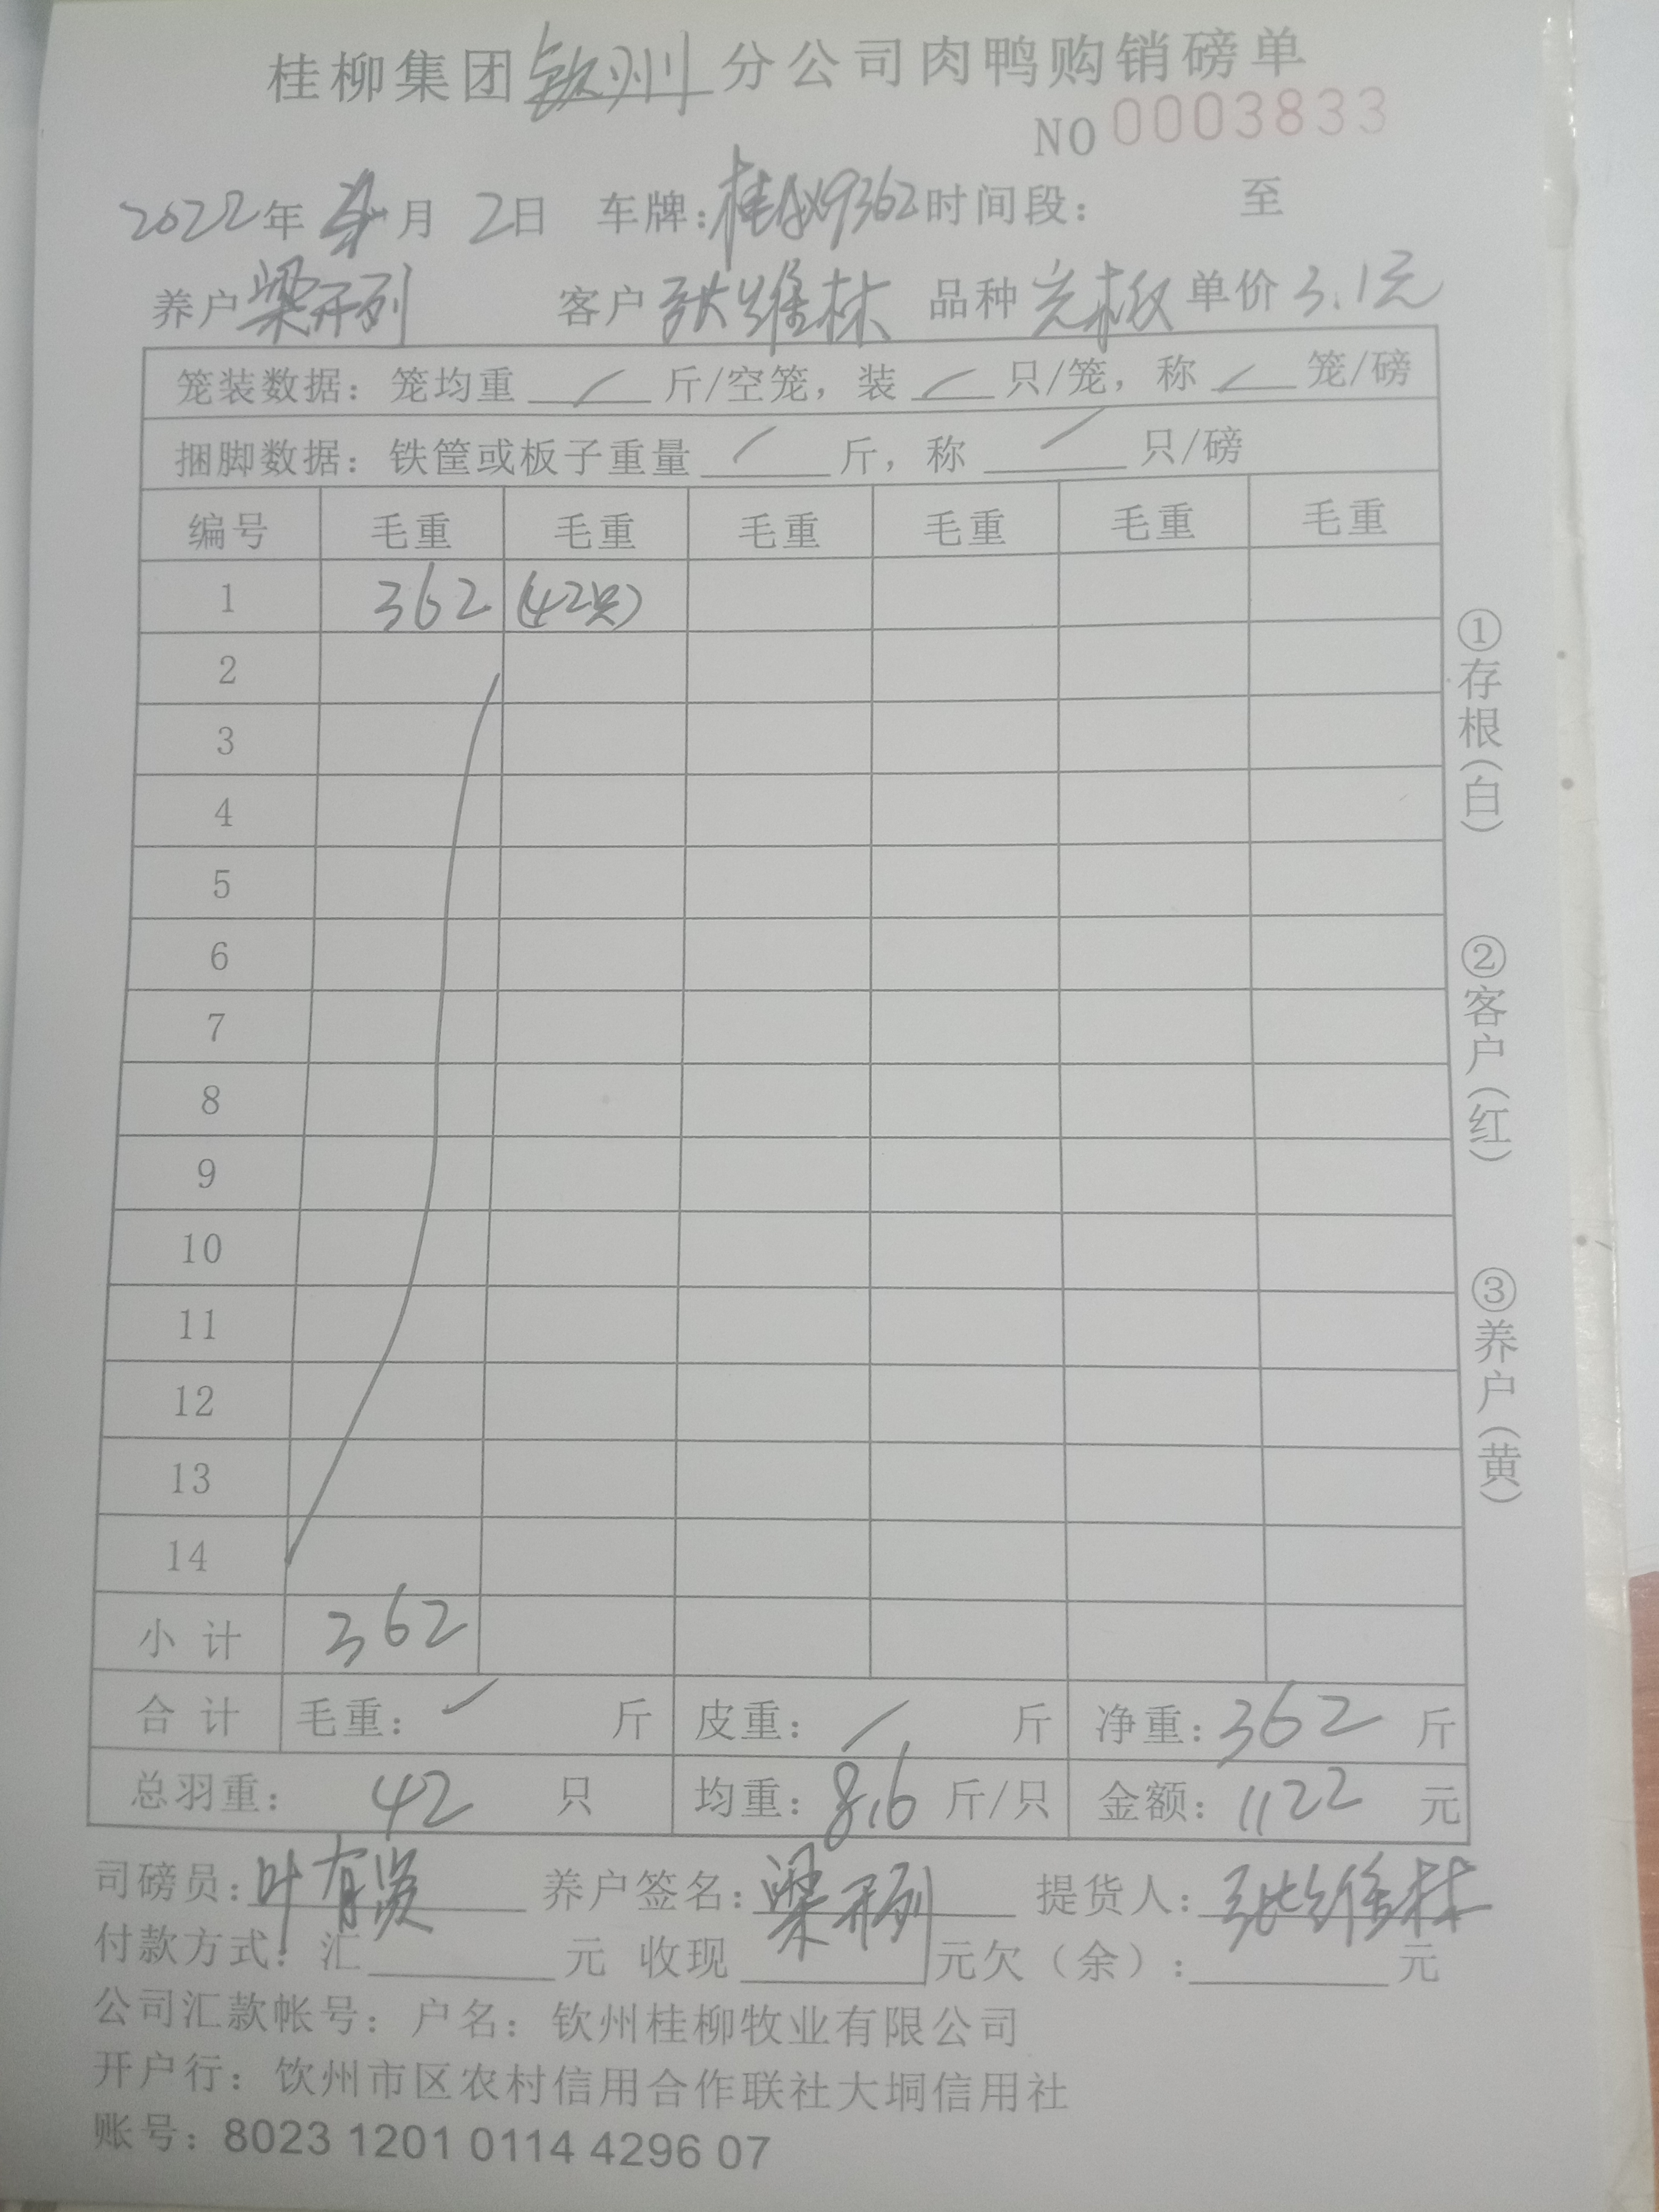 桂柳集团钦州分公司肉鸭购销磅单
NO 0003833
2022年 月 2日 车牌: 9362 时间段: 至
养户 梁开列 客户 张维林 品种 光板 单价 3.1元
笼装数据: 笼均重 / 斤/空笼, 装 / 只/笼, 称 / 笼/磅
捆脚数据: 铁筐或板子重量 / 斤, 称 / 只/磅
编号 毛重 毛重 毛重 毛重 毛重 毛重
1 362 (42只)
2
3
4
5
6
7
8
9
10
11
12
13
14
小计 362
合计 毛重: / 斤 皮重: / 斤 净重: 362 斤
总羽重: 42 只 均重: 8.6 斤/只 金额: 1122 元
司磅员: 叶有 养户签名: 梁开列 提货人: 张维林
付款方式: 汇 元 收现 元欠(余): 元
公司汇款帐号: 户名: 钦州桂柳牧业有限公司
开户行: 钦州市区农村信用合作联社大垌信用社
账号: 8023 1201 0114 4296 07
①存根(白)
②客户(红)
③养户(黄)